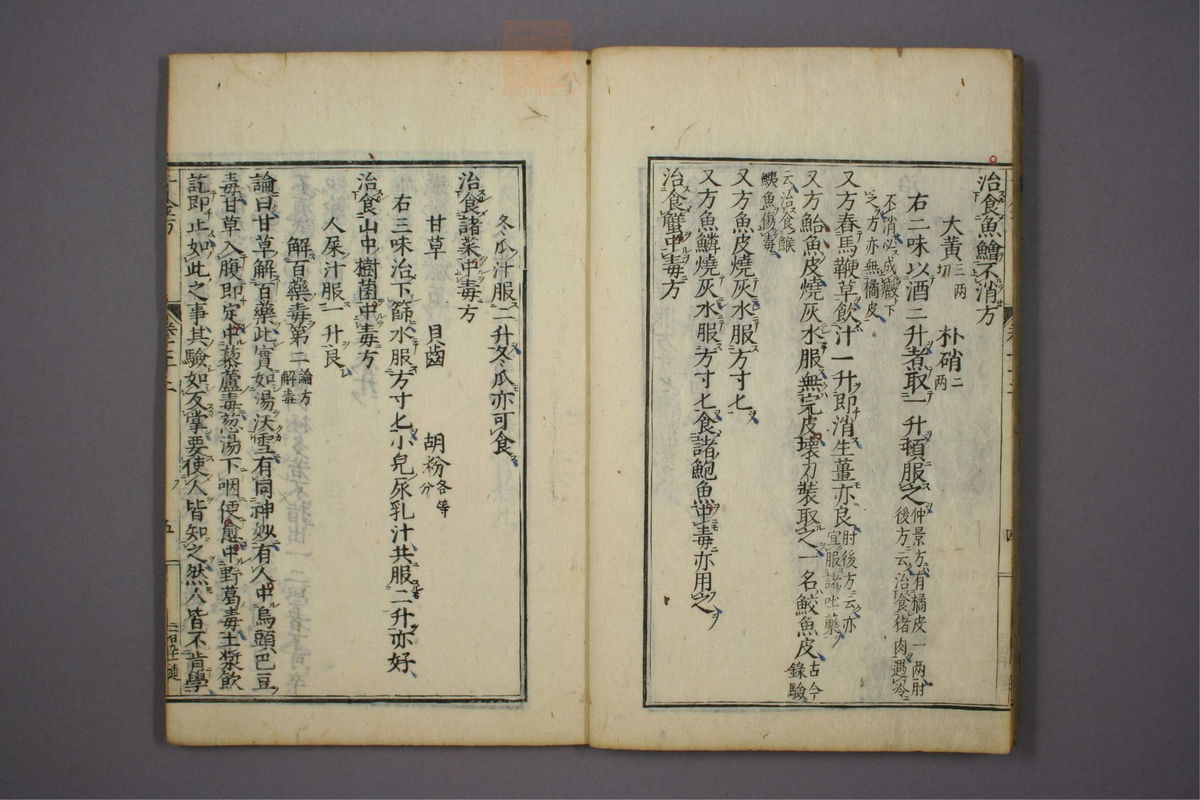 治食魚鱠不消方
大黃三兩切 朴硝二兩
右二味以酒二升煮取一升頓服之仲景方有橘皮一兩肘後方云治食猪肉遇冷
不消必成癥下之方亦無橘皮
又方舂馬鞭草飲汁一升即消生薑亦良肘後方云亦宜服諸吐藥
又方鮐魚皮燒灰水服無完皮壞刀裝取之一名鮫魚皮古今錄驗
云治食鯸鮧魚傷毒
又方魚皮燒灰水服方寸匕
又方魚鱗燒灰水服方寸匕食諸鮑魚中毒亦用之
治食蟹中毒方
冬瓜汁服二升冬瓜亦可食
治食諸菜中毒方
甘草 貝齒 胡粉各等分
右三味治下篩水服方寸匕小兒尿乳汁共服二升亦好
治食山中樹菌中毒方
人屎汁服一升良
解百藥毒第二論方解毒
論曰甘草解百藥此實如湯沃雪有同神妙有人中烏頭巴豆
毒甘草入腹即定中藜蘆毒葱湯下咽便愈中野葛毒土漿飲
訖即止如此之事其驗如反掌要使人皆知之然人皆不肯學